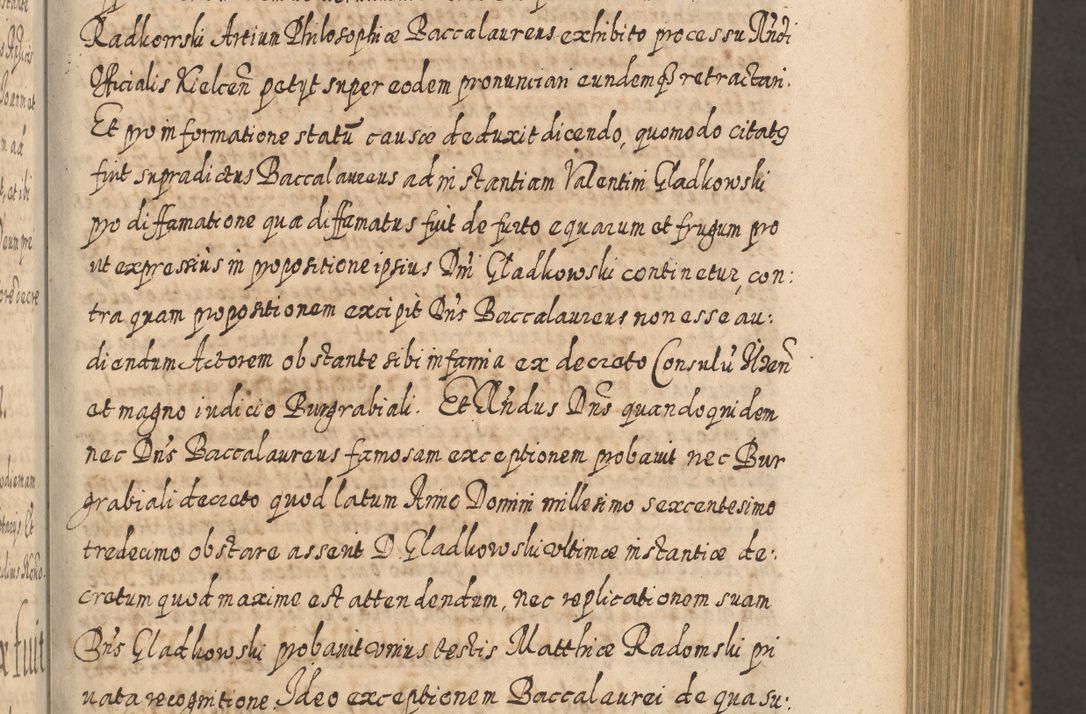 Radkowski Artium Philosophiæ Baccalaureus exhibito processu Rñdi
Officialis Kielceñ petyt super eodem pronunciari eundemq̃ retractari.
Et pro informatione statũ causæ deduxit dicendo, quomodo citatꝯ
fuit supradictus Baccalaureus ad instantiam Valentini Gladkowski
pro diffamatione qua diffamatus fuit de furto equarum et frugum pro
ut expressius in propositione ipsius Dñi Gladkowski continetur, con:
tra quam propositionem excipit Dñs Baccalaureus non esse au:
diendum Actorem obstante sibi infamia ex decreto Consulũ
et magno iudicio Burgrabiali. Et Rñdus Dñs quandoquidem
nec Dñs Baccalaureus famosam exceptionem probavit nec Bur
grabiali decreto quod latum Anno Domini millesimo sexcentesimo
tredecimo obstare asserit D. Gladkowski ultimæ instantiæ de:
cretum quod maxime est attendendum, nec replicationem suam
Dñs Gladkowski probavit unius testis Matthiæ Radomski pri
vata recognitione. Ideo exceptionem Baccalaurei de qua su: